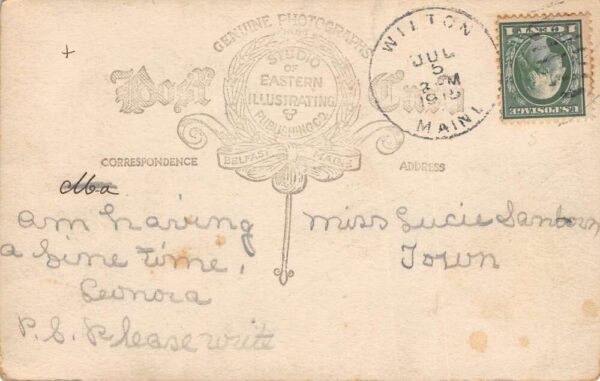 GENUINE PHOTOGRAPHS
STUDIO
OF
EASTERN
ILLUSTRATING
&
PUBLISHING CO.
BELFAST MAINE
Post Card
CORRESPONDENCE
ADDRESS
WILTON
JUL
5
M
MAINE
1 CENT 1
U.S. POSTAGE
am having
a fine time,
Leonora
P.S. Please write
Miss Lucie Sanborn
Town